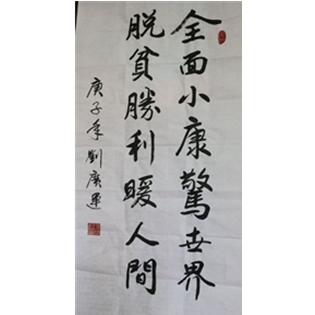 全面小康驚世界
脱貧勝利暖人間
庚子年劉廣運